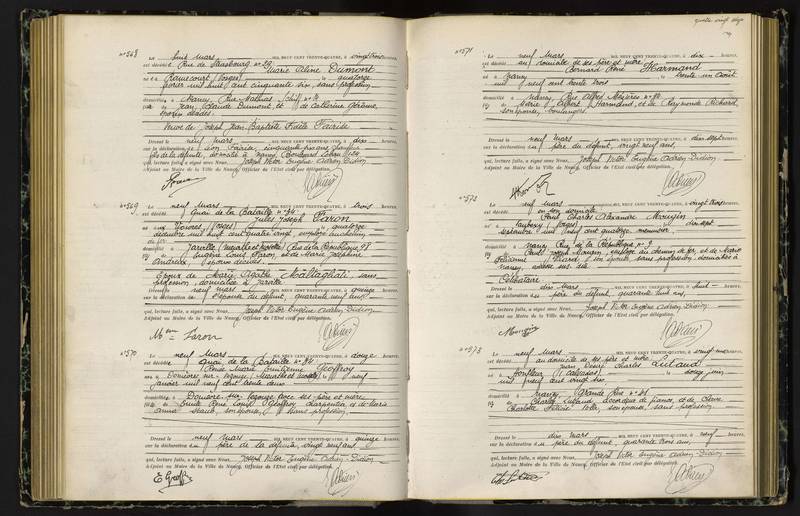 N° 568
Le huit mars MIL NEUF CENT TRENTE-QUATRE, à vingt trois HEURES,
est décédée Rue de Strasbourg n° 29
Marie Céline Dumont
née à Ramecourt (Vosges) le quatorze
février mil huit cent cinquante six, sans profession
domiciliée à Nancy, Rue Mathias
de Jean Claude Dumont et de Catherine Gérôme,
époux décédés.
Veuve de Joseph Jean-Baptiste Fidèle
Dressé le neuf mars MIL NEUF CENT TRENTE-QUATRE, à dix HEURES,
sur la déclaration de Léon cinquante six ans
fils de la défunte, domicilié à Nancy, Boulevard
qui, lecture faite, a signé avec Nous, Joseph Victor Eugène Adrien-Didion
Adjoint au Maire de la Ville de Nancy, Officier de l'Etat civil par délégation.
N° 569
Le neuf mars MIL NEUF CENT TRENTE-QUATRE, à trois HEURES,
est décédé Quai de la Bataille n° 34
Jules Joseph Faron
né aux Vosges) le quatorze
décembre mil huit cent quatre vingt
de fer
domicilié à Jarville (Meurthe et Moselle) Rue de la République 98
fils de Eugène Louis Faron, et de Marie Joséphine
Andreux, époux décédés.
Epoux de Marie Agathe Maltagliati, sans
profession, domiciliée à Jarville
Dressé le neuf mars MIL NEUF CENT TRENTE-QUATRE, à quinze HEURES,
sur la déclaration de l'épouse du défunt, quarante neuf ans,
qui, lecture faite, a signé avec Nous, Joseph Victor Eugène Adrien-Didion
Adjoint au Maire de la Ville de Nancy, Officier de l'Etat civil par délégation.
Mme Faron
N° 570
Le neuf mars MIL NEUF CENT TRENTE-QUATRE, à douze HEURES,
est décédée Quai de la Bataille
Renée Marie Geoffroy
née à (Meurthe et Moselle) le neuf
janvier mil neuf cent trente deux
domiciliée à avec ses père et mère
fille de Emile René Louis Geoffroy, charpentier, et de Marie
Anna son épouse, sans profession.
Dressé le neuf mars MIL NEUF CENT TRENTE-QUATRE, à quinze HEURES,
sur la déclaration du père de la défunte, vingt neuf ans,
qui, lecture faite, a signé avec Nous, Joseph Victor Eugène Adrien-Didion
Adjoint au Maire de la Ville de Nancy, Officier de l'Etat civil par délégation.
quatre vingt
N° 571
Le neuf mars MIL NEUF CENT TRENTE-QUATRE, à dix HEURES,
est décédé au domicile de ses père et mère
Bernard René Harmand
né à Nancy le trente un août
mil neuf cent trente trois
domicilié à Nancy Rue Alfred Mézières
fils de Marie Albert Harmand, et de Raymonde Richard,
son épouse, boulangers.
Dressé le neuf mars MIL NEUF CENT TRENTE-QUATRE, à dix sept HEURES,
sur la déclaration du père du défunt, vingt neuf ans,
qui, lecture faite, a signé avec Nous, Joseph Victor Eugène Adrien-Didion
Adjoint au Maire de la Ville de Nancy, Officier de l'Etat civil par délégation.
N° 572
Le neuf mars MIL NEUF CENT TRENTE-QUATRE, à vingt trois HEURES,
est décédé en son domicile
Paul Charles Alexandre Mougin
né à (Vosges) le dix sept
septembre mil neuf cent quatorze, menuisier,
domicilié à Nancy Rue de la République n° 9
fils de Joseph Mougin, employé au chemin de fer, et de Marie
son épouse, sans profession, domiciliés à
Nancy,
Célibataire
Dressé le dix mars MIL NEUF CENT TRENTE-QUATRE, à huit HEURES,
sur la déclaration du père du défunt, quarante huit ans,
qui, lecture faite, a signé avec Nous, Joseph Victor Eugène Adrien-Didion
Adjoint au Maire de la Ville de Nancy, Officier de l'Etat civil par délégation.
Mougin
N° 573
Le neuf mars MIL NEUF CENT TRENTE-QUATRE, à vingt HEURES,
est décédé au domicile de ses père et mère
Jean Denis Charles
né à Honfleur (Calvados) le douze juin
mil neuf cent vingt six
domicilié à Nancy Grande Rue
fils de Charles accordeur de pianos, et de
Charlotte son épouse, sans profession.
Dressé le dix mars MIL NEUF CENT TRENTE-QUATRE, à neuf HEURES,
sur la déclaration du père du défunt, quarante trois ans,
qui, lecture faite, a signé avec Nous, Joseph Victor Eugène Adrien-Didion
Adjoint au Maire de la Ville de Nancy, Officier de l'Etat civil par délégation.